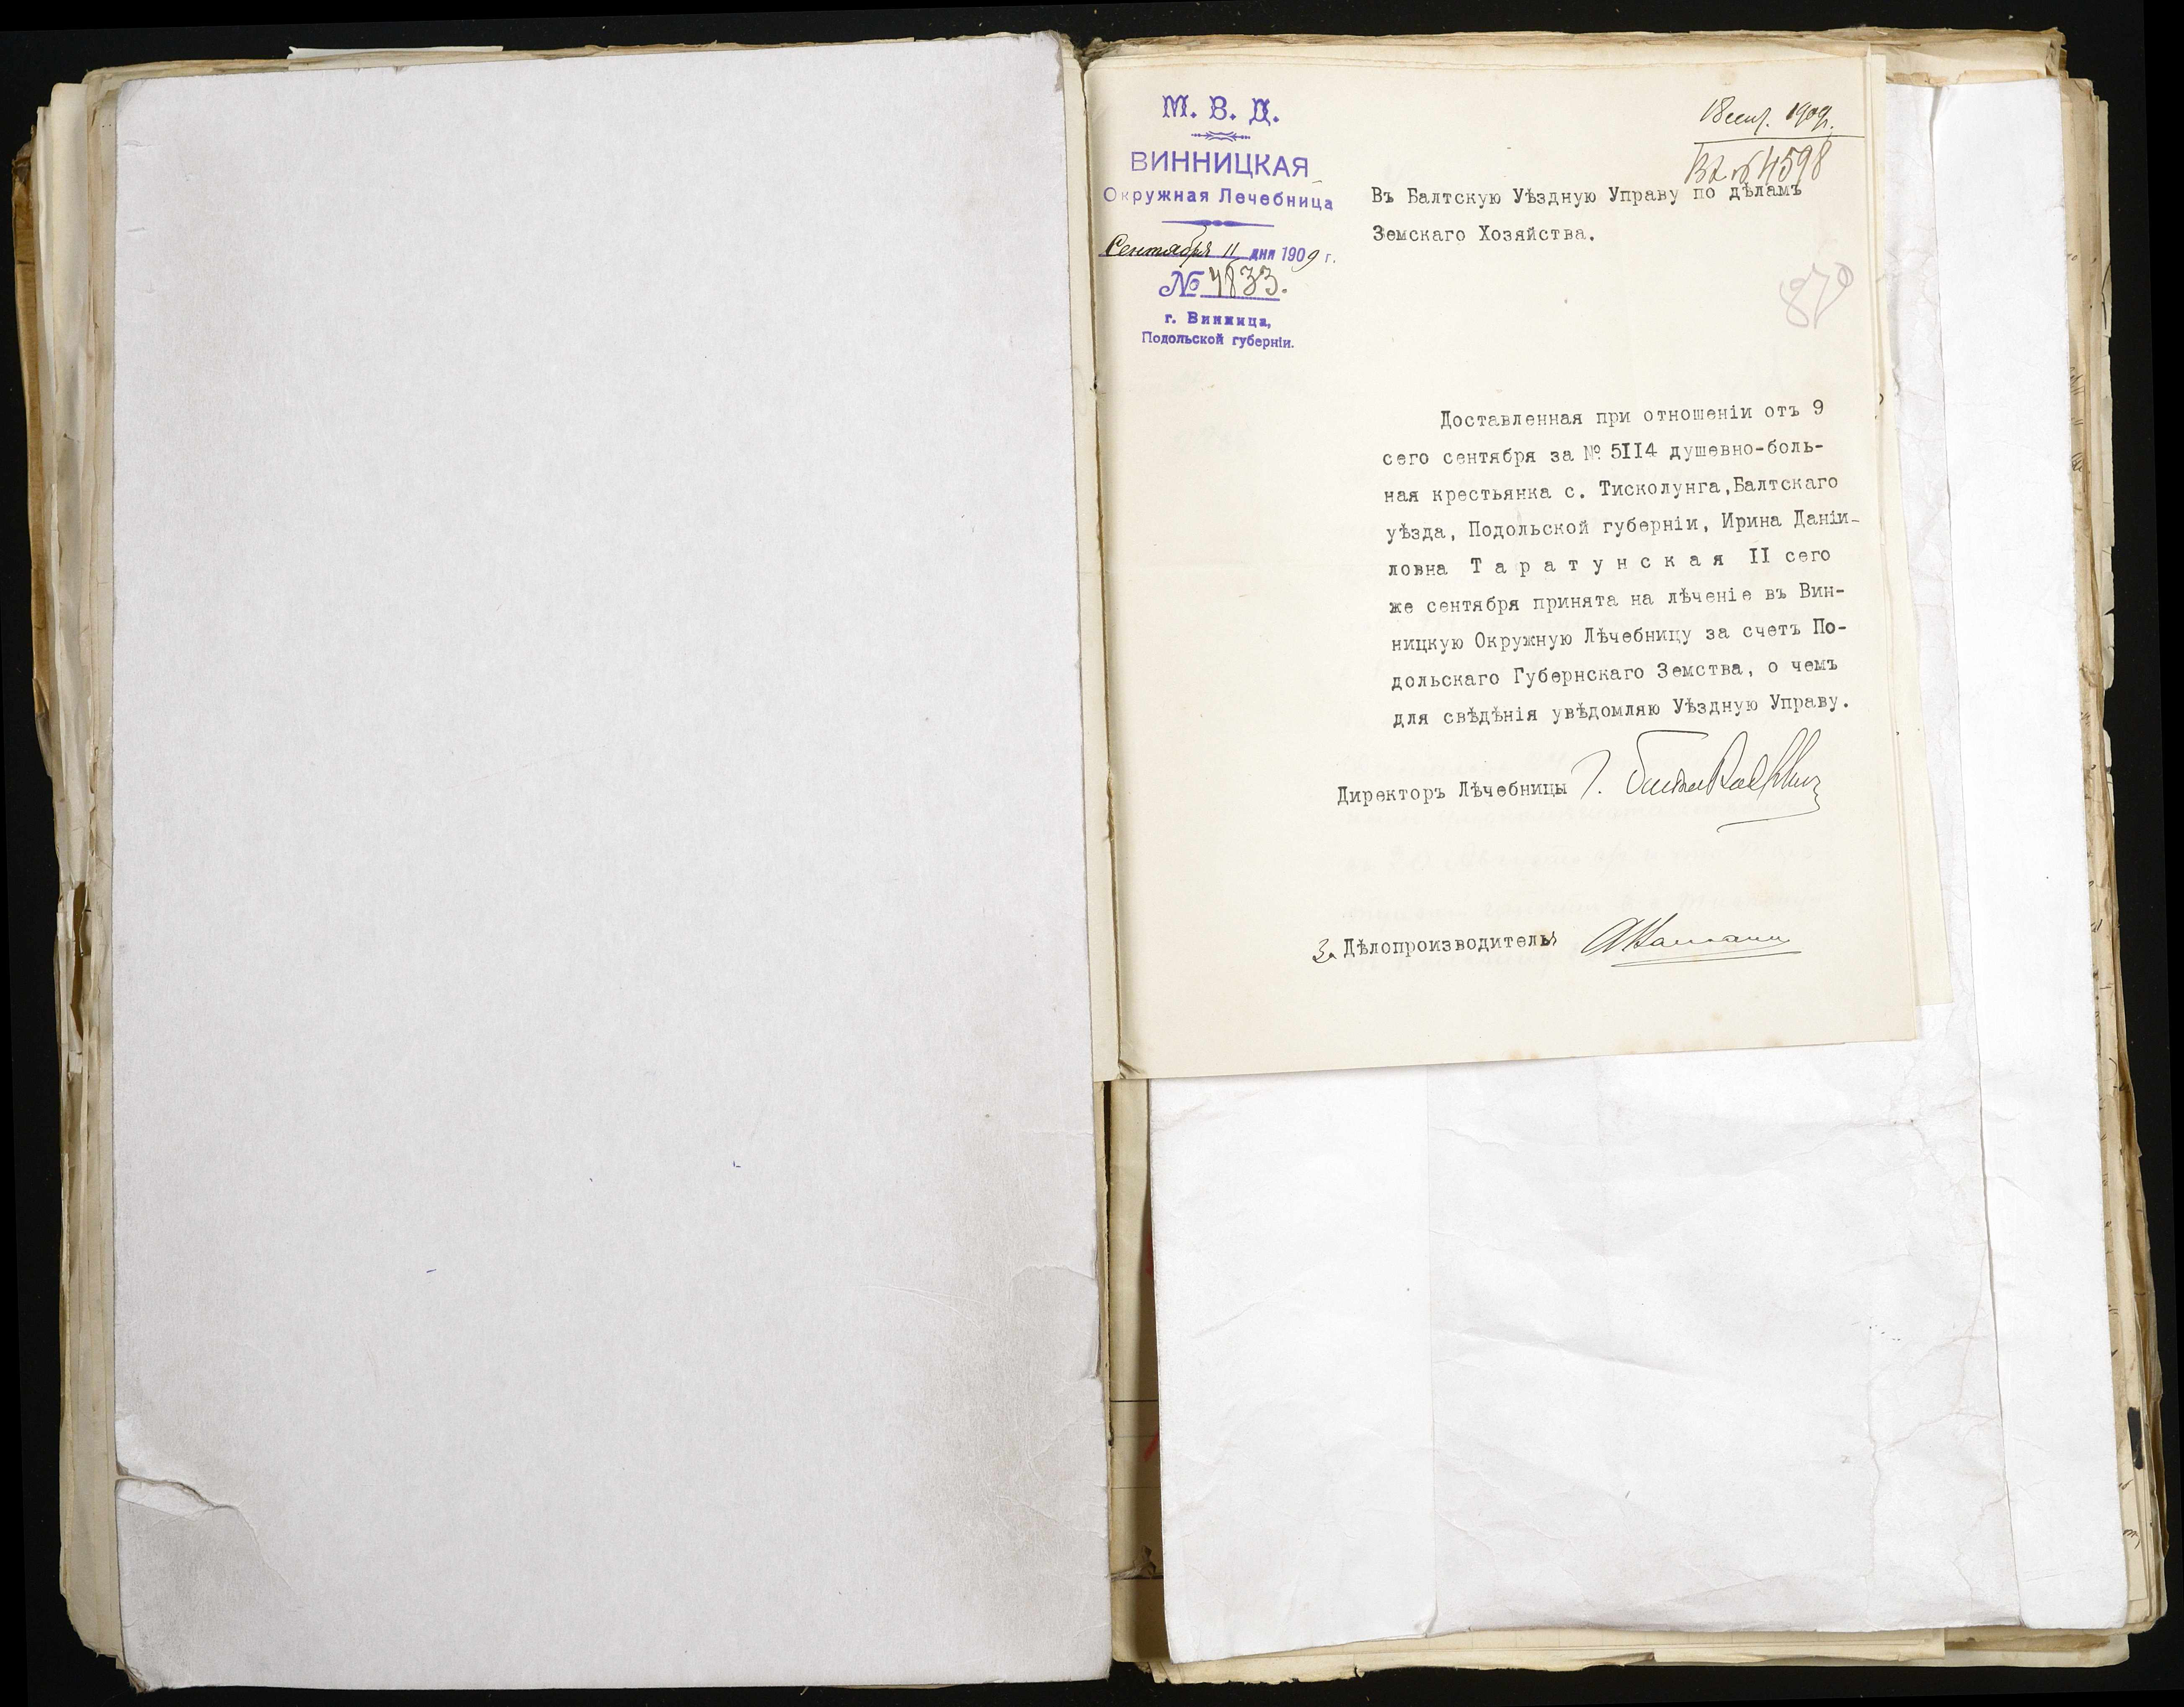 М. В. Д.
ВИННИЦКАЯ
Окружная Лечебница
Сентября 11 дня 1909 г.
№ 4833.
г. Винница,
Подольской губерніи.
18 сент. 1909 г.
Вх № 4598
Въ Балтскую Уѣздную Управу по дѣламъ
Земскаго Хозяйства.
Доставленная при отношеніи отъ 9
сего сентября за № 5II4 душевно-боль-
ная крестьянка с. Тисколунга,Балтскаго
уѣзда, Подольской губерніи, Ирина Даніи-
ловна Т а р а т у н с к а я II сего
же сентября принята на лѣченіе въ Вин-
ницкую Окружную Лѣчебницу за счетъ По-
дольскаго Губернскаго Земства, о чемъ
для свѣдѣнія увѣдомляю Уѣздную Управу.
Директоръ Лѣчебницы
За Дѣлопроизводителя